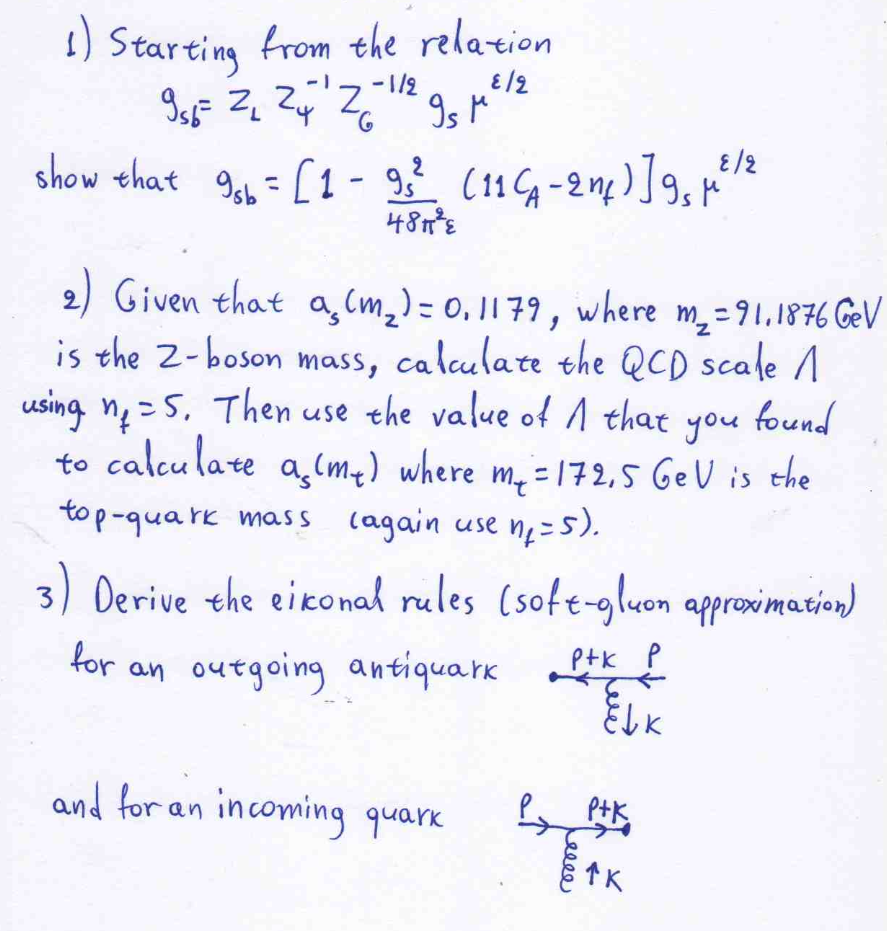 1) Starting from the relation
g_sb = Z_1 Z_ψ^-1 Z_G^-1/2 g_s μ^ε/2
show that g_sb = [1 - g_s^2/48π^2ε (11 C_A - 2n_f)] g_s μ^ε/2
2) Given that a_s(m_z) = 0.1179, where m_z = 91.1876 GeV
is the Z-boson mass, calculate the QCD scale Λ
using n_f = 5. Then use the value of Λ that you found
to calculate a_s(m_t) where m_t = 172.5 GeV is the
top-quark mass (again use n_f = 5).
3) Derive the eikonal rules (soft-gluon approximation)
for an outgoing antiquark p+k p
↓k
and for an incoming quark p p+k
↑k